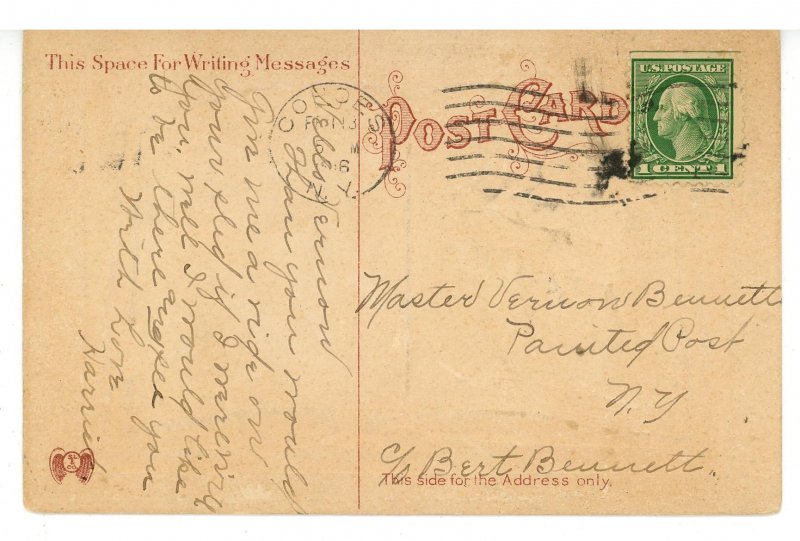 This Space For Writing Messages
POST CARD
U.S. POSTAGE
1 CENT 1
COHOES
N.Y.
Hello Vernon
you would
me a ride on
your sled if I were
you, well I would like
to be there you
With Love
Harriet
Master Vernon Bennett
Painted Post
N.Y
c/o Bert Bennett.
This side for the Address only.